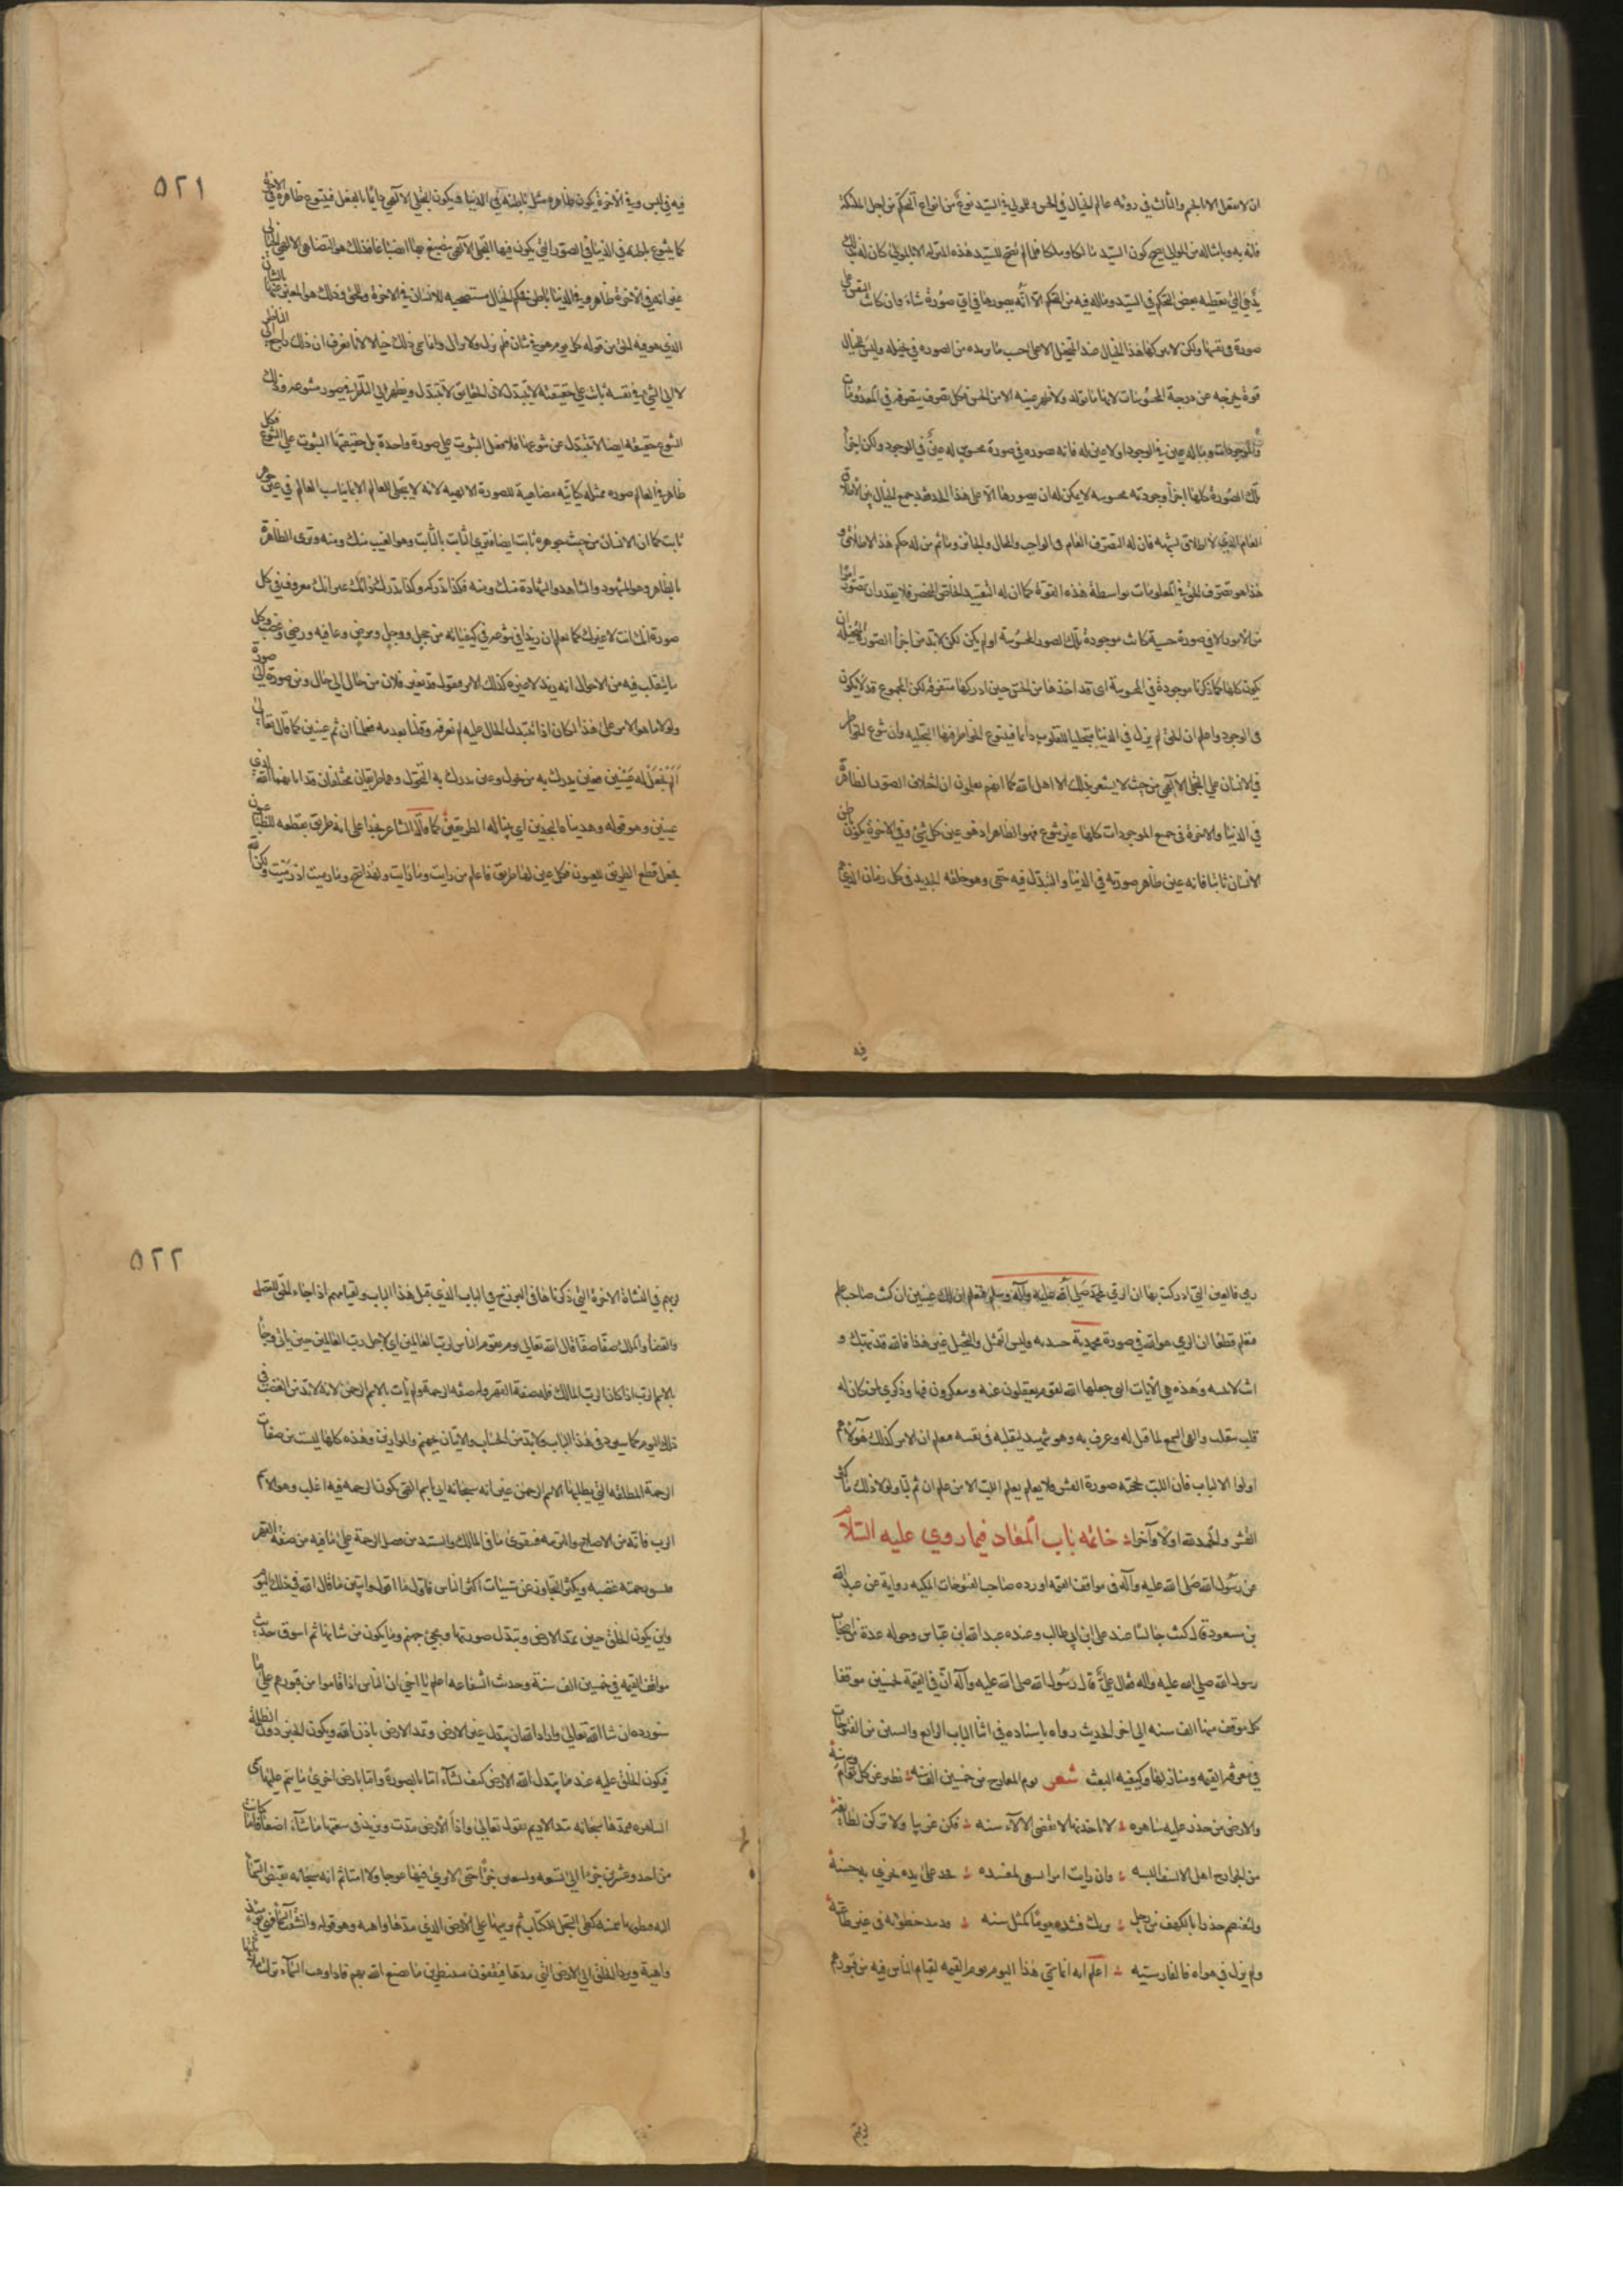 ان لا يعقل الا الجرم والثالث في دونه عالم الخيال في الحس وللولي في السيد نوع من انواع التحكم من اجل المملكة
فانه به وبامثاله من الموالي يصح كون السيد مالكا وملكا فلما لم تصح للسيد هذه المنزلة الا بالمولي كان له بذلك
يد هي التي تعطيه بعض التحكم في السيد وماله فيه من التحكم الا انه يصورها في اي صورة شاء وان كانت النفس على
صورة في نفسها ولكن لا يتركها هذا الخيال عند المتخيل الا على حسب ما يريده من الصورة في تخيله وليس لخيال
قوة يخرجه عن درجة المحسوسات لانه ما تولد ولا ظهر عينه الا من الحس فكل تصرف يتصرفه في المعدومات
والموجودات ومما له عين في الوجود او لا عين له فانه يصوره في صورة محسوس له عين في الوجود ولكن اجزأ
تلك الصورة كلها اجزأ وجودية محسوسة لا يمكن له ان يصورها الا على هذا الحد فقد جمع الخيال بين الاطلاق
العام الذي لا اطلاق يشبهه فان له التصرف العام في الواجب والمحال والجائز وما ثم من له حكم هذا الاطلاق و
هذا هو تصرف الحق في المعلومات بواسطة هذه القوة كما ان له التقييد الخاص المنحصر فلا يقدر ان يصور امرا
من الامور الا في صورة حسية كانت موجودة تلك الصورة المحسوسة او لم يكن لكن لا بد من اجزأ الصورة المتخيلة ان
يكون كلها كما ذكرنا موجودة في المحسوسة اي قد اخذها من الحس حين ادركها متفرقة لكن المجموع قد لا يكون
في الوجود واعلم ان الحق لم يزل في الدنيا متجليا للقلوب دائما فيتنوع الخواطر فيها لتجليه وان تنوع الخواطر
في الانسان على التجلي الالهي من حيث لا يشعر بذلك الا اهل الله كما انهم يعلمون ان اختلاف الصور الظاهرة
في الدنيا والاخرة في جميع الموجودات كلها عين تنوع فهو الظاهر اذ هو عين كل شئ وفي الاخرة يكون باطن
الانسان ثابتا فانه عين ظاهر صورته في الدنيا والتبدل فيه خفي وهو خلقه الجديد في كل زمان الذي هم
فيه
٥٢١
فيه في لبس وفي الآخرة يكون ظاهره مثل باطنه في الدنيا فيكون التجلي الالهي دائما بالفعل فيتنوع ظاهره في الاخرة
كما يتنوع باطنه في الدنيا في الصور التي يكون فيها التجلي الالهي فينصبغ بها انصباغا فذلك هو التضاهي الالهي الخيالي
غير انه في الآخرة ظاهر وفي الدنيا باطن فحكم الخيال مستصحب للانسان في الاخرة وللحق وذلك هو المعبر عنه بالشان
الذي هو فيه الحق من قوله كل يوم هو في شان فلم يزل ولا يزال وانما سمي ذلك خيالا لانا نعرف ان ذلك راجع الى الناظر
لا الى الشئ في نفسه ثابت على حقيقته لا يتبدل لان الحقائق لا تتبدل ويظهر الى الناظر في صور متنوعة وذلك
التنوع حقيقة ايضا لا تتبدل عن تنوعها فلا تقبل الثبوت على صورة واحدة بل حقيقتها الثبوت على التنوع فكل
ظاهر في العالم صورة ممثلة كيانية مضاهية للصورة الالهية لانه لا يتجلى للعالم الا بما يناسب العالم في عين جوهر
ثابت كما ان الانسان من حيث جوهره ثابت ايضا فترى الثابت بالثابت وهو الغيب منك ومنه وترى الظاهر
بالظاهر وهو المشهود والشاهد والشهادة منك ومنه فكذا تدركه وكذا تدرك ذاتك غير انك معروف في كل
صورة انك انت لا غيرك كما تعلم ان زيدا في تنوعه في كيفياته من خجل ووجل ومرض وعافيه ورضى وغضب وكل
ما يتقلب فيه من الاحوال انه زيد لا غيره كذلك الامر فنقول قد تغير فلان من حال الى حال ومن صورة الى صورة
ولولا ما هو الامر على هذا لكان اذا تبدل الحال عليه لم نعرفه وقلنا بعدمه فعلمنا ان ثم عينين كما قال تعالى
الم نجعل له عينين فعين يدرك به من يتحول وعين يدرك به التحول وهما طريقان مختلفان قد ابانهما الله الذي
عينين وهو قوله وهديناه النجدين اي بينا له الطريقين كما قال الشاعر نجدا على انه طريق تقطعه للظباء عيون
فجعل قطع الطريق للعيون فكل عين لها طريق فاعلم من رايت وما رايت ولهذا صح وما رميت اذ رميت ولكن الله
رمى فالعين التي ادركت بها ان الرمي لمحمد صلى الله عليه وآله وسلم فتعلم ان لك عينين ان كنت صاحب علم
فتعلم قطعا ان الرامي هو الله في صورة محمدية جسدية وليس التمثل والتخيل غير هذا فالله قد نبهك و
انت لا تنتبه وهذه هي الآيات التي جعلها الله لقوم يعقلون عنه ويتفكرون فيها وذكرى لمن كان له
قلب يتقلب والقى السمع لما قيل له وعرف به وهو شهيد لتقلبه في نفسه فيعلم ان الامر كذلك هؤلاء هم
اولوا الالباب فان اللب يحجبه صورة القشر فلا يعلم اللب الا من علم ان ثم لبا ولولا ذلك ما كسر
القشر والحمد لله اولا وآخرا خاتمه باب المعاد فيما روي عليه السلام
عن رسول الله صلى الله عليه وآله في مواقف القيمه اورده صاحب الفتوحات المكيه رواية عن عبد الله
بن مسعود قال كنت جالسا عند علي ابن ابي طالب وعنده عبد الله ابن عباس وحوله عدة من اصحاب
رسول الله صلى الله عليه وآله فقال علي قال رسول الله صلى الله عليه وآله ان في القيمة لخمسين موقفا
كل موقف منها الف سنه الى اخر الحديث رواه باسناده في اثنا الباب الرابع والستين من الفتوحات
في معرفة القيمه ومنازلها وكيفيه البعث شعر يوم المعارج من خمسين الف سنه يطير عن كل نوام به وسنة
والارض من حذر عليه ساهره لا تاخذنها لما يقضي الاله سنه فكن غريبا ولا تركن لطائفة
من الخوارج اهل الالسن اللسنه وان رايت امرا يسعى لمفسده فخذ على يده تجزى به حسنه
ولتعتصم حذرا بالكهف من رجل تريك فتنته يوما كمثل سنه قد مد خطوته في غير طاعته
ولم يزل في هواه خالعا رسنه اعلم انه انما سمي هذا اليوم يوم القيمه لقيام الناس فيه من قبورهم
لربهم
٥٢٢
لربهم في النشاة الاخرة التي ذكرناها في البرزخ في الباب الذي قبل هذا الباب ولقيامهم اذا جاء الحق للفصل
والقضاء والملك صفا صفا قال الله تعالى يوم يقوم الناس لرب العالمين اي لاجل رب العالمين حين ياتي وجاء
بالاسم الرب اذ كان الرب المالك فله صفة القهر وله صفة الرحمة ولم يات بالاسم الرحمن لانه لا بد من الغضب في
ذلك اليوم كما سيرد في هذا الباب ولا بد من الحساب والاتيان بجهنم والموازين وهذه كلها ليست من صفات
الرحمة المطلقه التي يطلبها الاسم الرحمن غير انه سبحانه اتى باسم التي تكون الرحمه فيه اغلب وهو الاسم
الرب فانه من الاصلاح والتربيه فيتقوى ما في المالك والسيد من فضل الرحمة على ما فيه من صفة القهر
فتسبق رحمته غضبه ويكثر التجاوز عن سيئات اكثر الناس فاول ما اقول وابين ما قال الله في ذلك اليوم
واين يكون الخلق حين تمد الارض وتبدل صورتها وتجئ جهنم وما يكون من شانها ثم اسوق حديث
مواقف القيمه في خمسين الف سنة وحديث الشفاعه اعلم يا اخي ان الناس اذا قاموا من قبورهم على ما
سنورده ان شاالله تعالى واراد الله ان يبدل غير الارض وتمد الارض باذن الله ويكون الجسر دون الظلمة
فيكون الخلق عليه عند ما يبدل الله الارض كيف يشآء اما بالصورة واما بارض اخرى ما نيم عليها تسمى
الساهره فيمدها سبحانه مد الاديم بقوله تعالى واذا الارض مدت ويزيد في سعتها ما شآء اضعاف ما كانت
من احد وعشرين جزءا الى تسعه وتسعين جزءا حتى لا ترى فيها عوجا ولا امتا ثم انه سبحانه يقبض السماء
اليه فيطويها بيمينه كطي السجل للكتاب ثم يرميها على الارض الذي مدها واهية وهو قوله وانشقت السماء فهي يومئذ
واهية ويرد الخلق الى الارض التي مدها فيقفون منتظرين ما يصنع الله بهم فاذا وهت السمآء نزلت ملائكتها